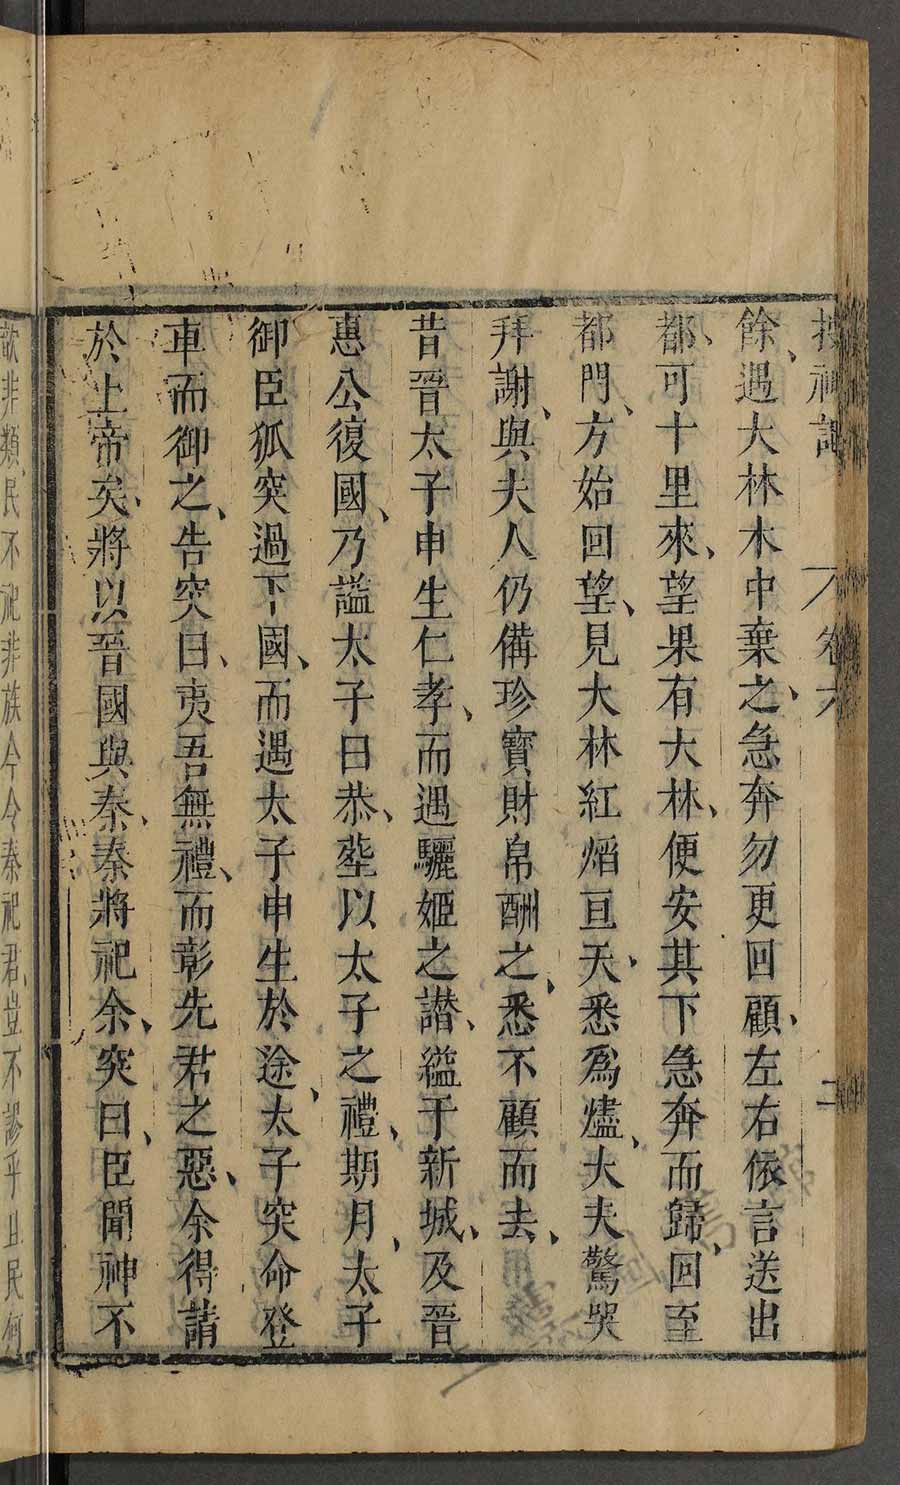 搜神記 卷六 二
餘、遇大林木中棄之、急奔勿更回顧、左右依言送出
都、可十里來、望果有大林、便安其下急奔而歸、回至
都門、方始回望、見大林紅焰亘天、悉爲燼、大夫驚哭
拜謝、與夫人仍備珍寶財帛酬之、悉不顧而去、
昔晉太子申生仁孝、而遇驪姬之譖、縊于新城、及晉
惠公復國、乃謚太子曰恭、塟以太子之禮、期月、太子
御臣狐突過下國、而遇太子申生於途、太子突命登
車而御之、告突曰、夷吾無禮、而彰先君之惡、余得請
於上帝矣、將以晉國與秦、秦將祀余、突曰、臣聞神不
歆非類、民不祀非族今令秦祀君、豈不謬乎且民何